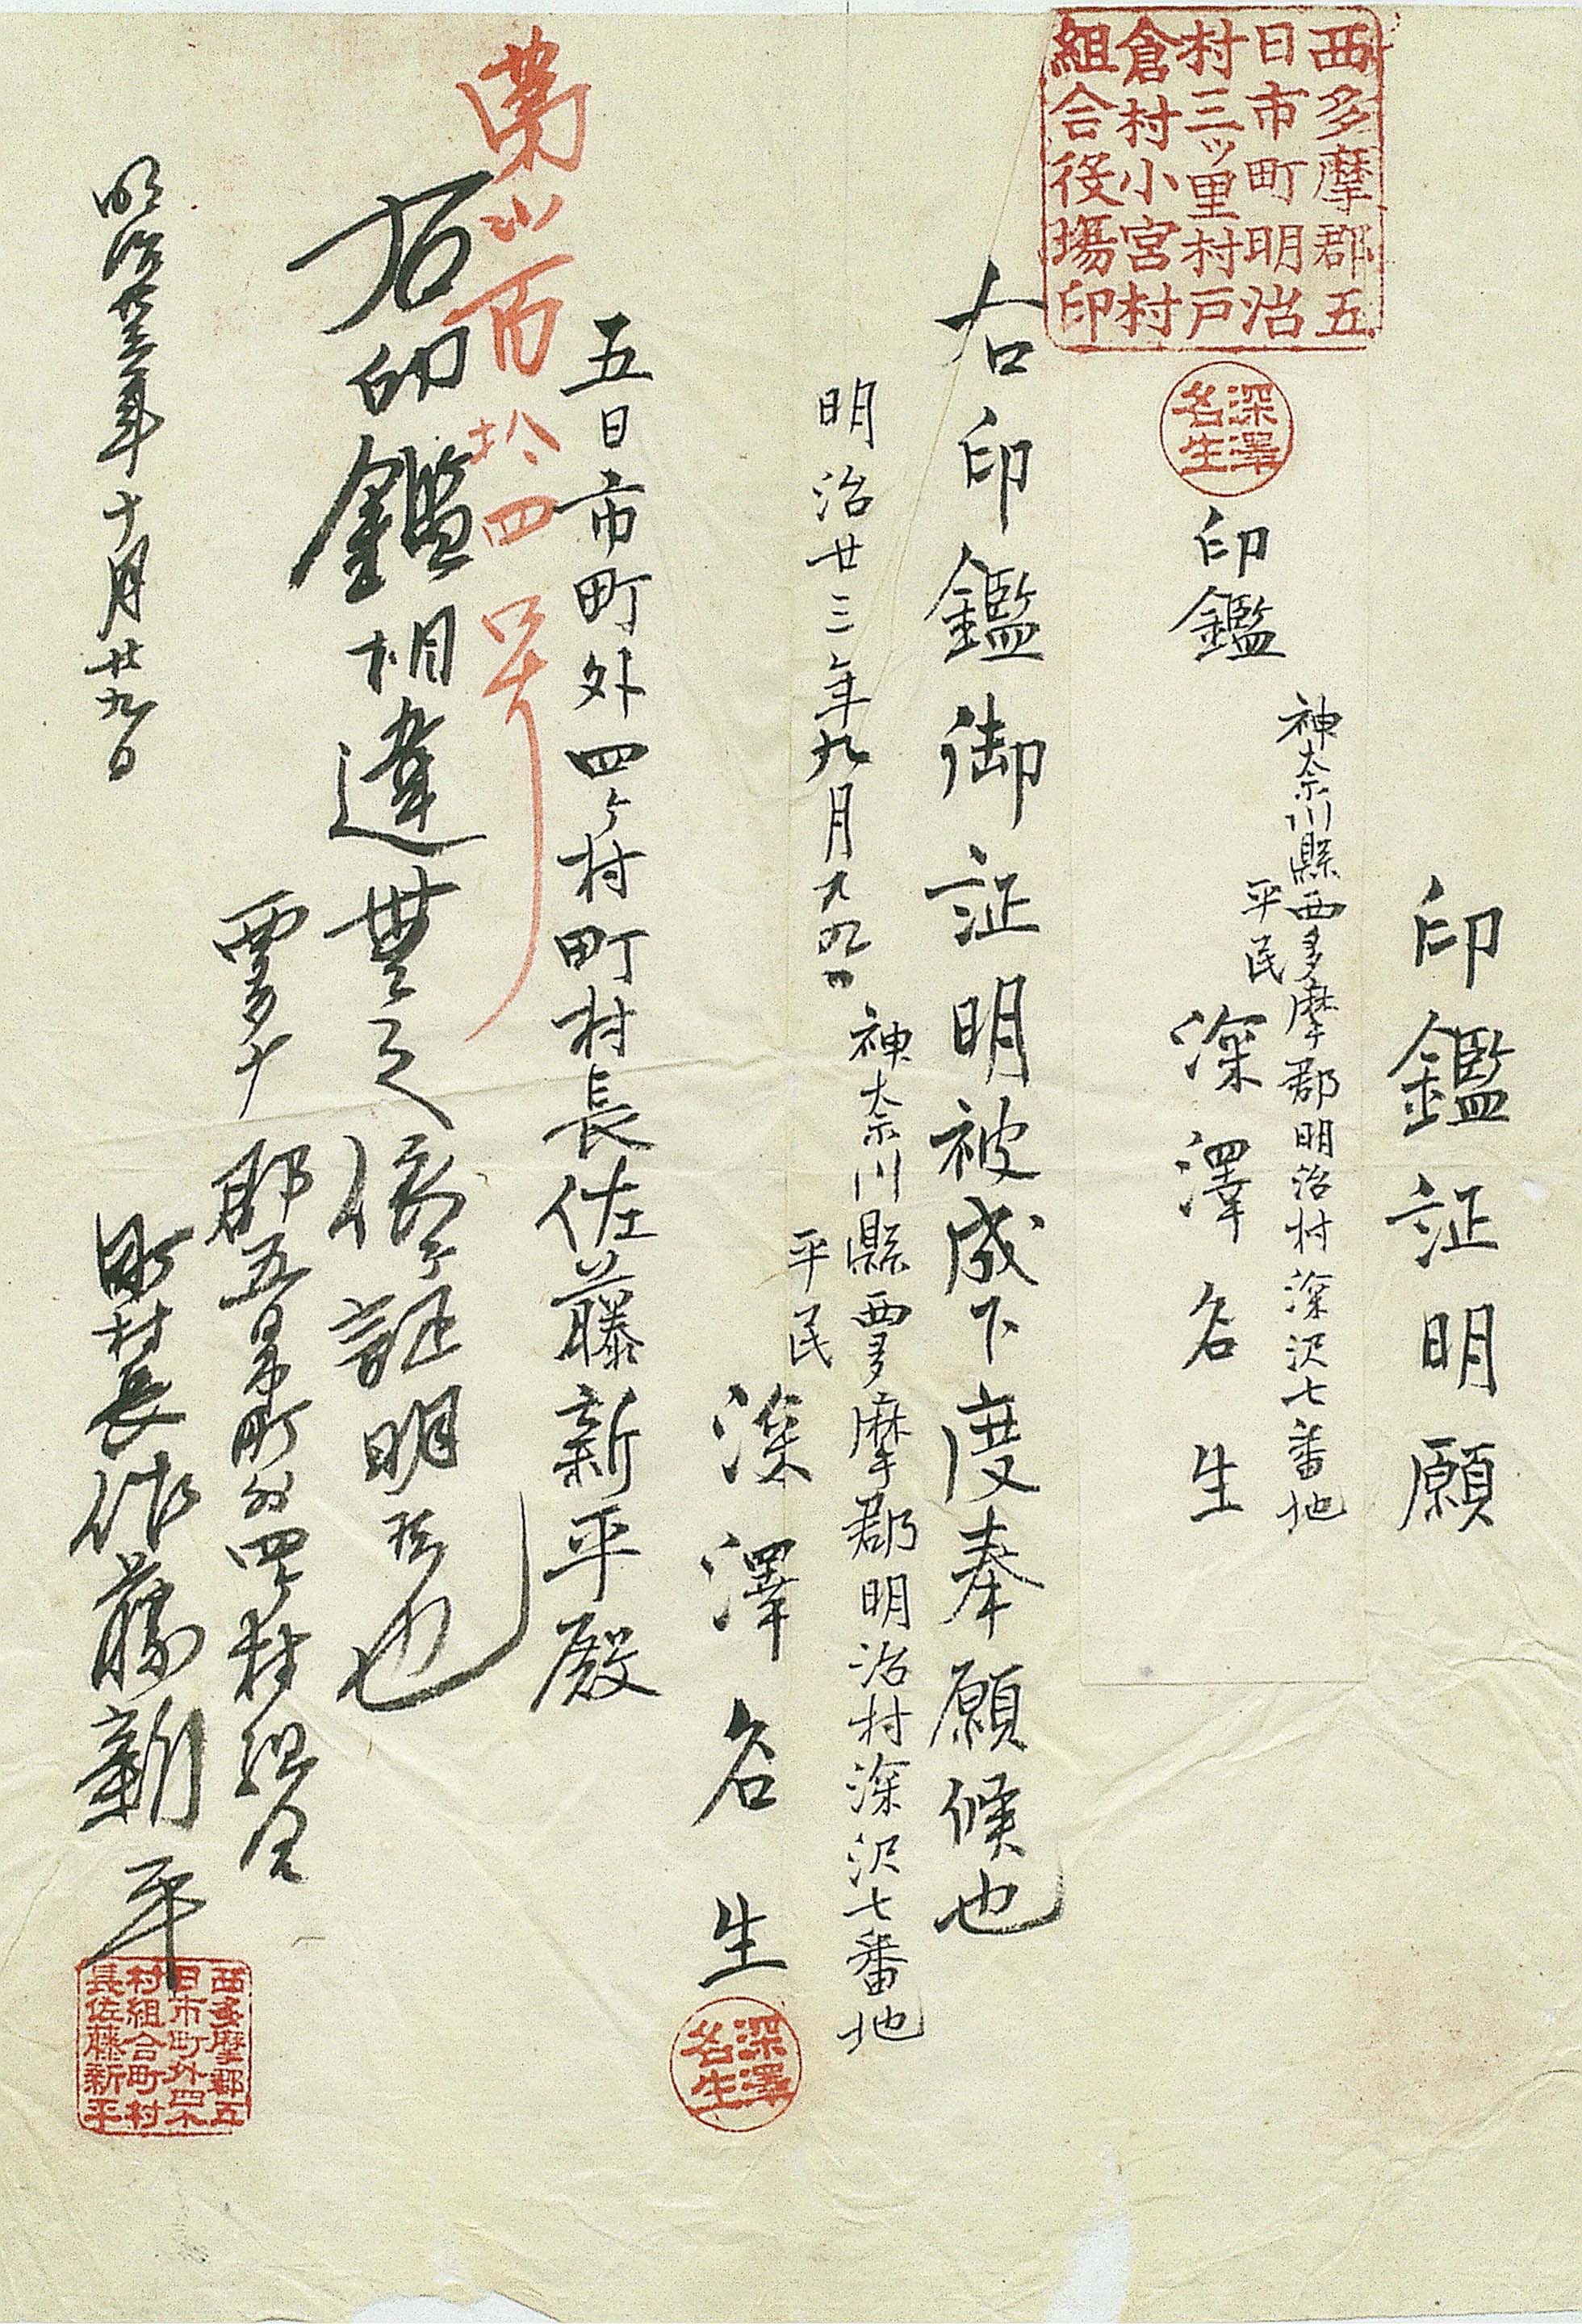 印鑑証明願
西多摩郡五
日市町明治
村三ッ里村戸
倉村小宮村
組合役場印
神奈川縣西多摩郡明治村深沢七番地
平民
深澤名生
印鑑
深澤
名生
右印鑑御証明被成下度奉願候也
神奈川縣西多摩郡明治村深沢七番地
平民
明治廿三年九月
深澤名生
深澤
名生
五日市町外四ヶ村町村長佐藤新平殿
第 百 四号
右印鑑相違無之依テ証明 也
西多摩郡五日市町外四ヶ村組合
町村長佐藤新平
明治廿三年十月廿九日
西多摩郡五
日市町外四ケ
村組合町村
長佐藤新平